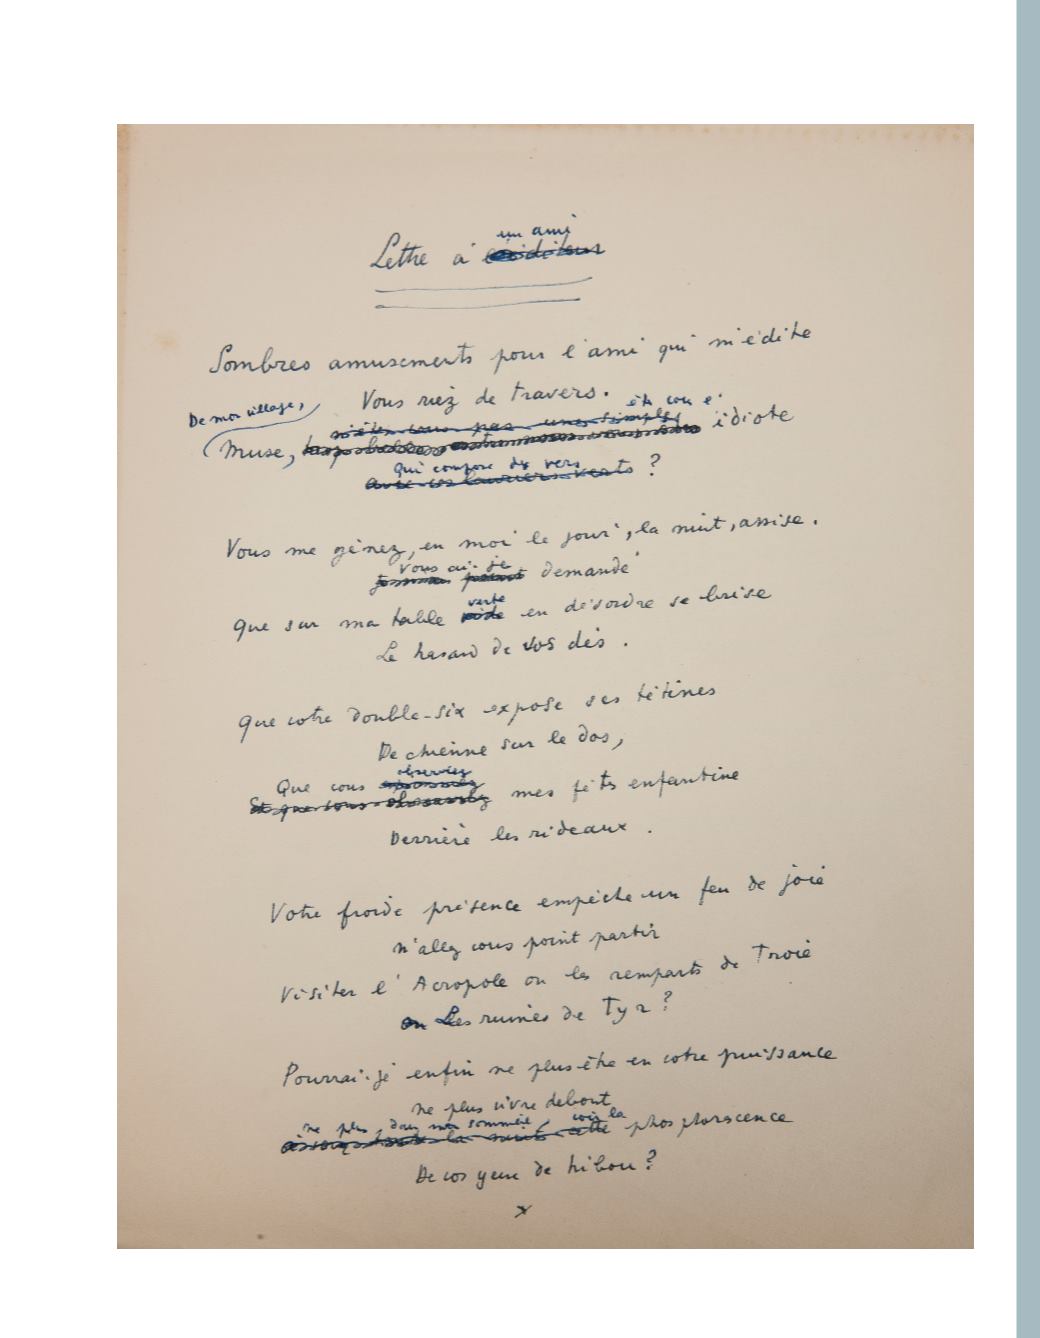 un ami
Lettre à l'éditeur
Sombres amusements pour l'ami qui m'édite
Vous riez de travers.
De mon village,
n'êtes vous pas une simple êtes vous l'
Muse, idiote
Qui compose des vers
avec ces lauriers verts ?
Vous me gênez, en moi le jour, la nuit, assise.
Vous ai-je
jamais point demandé
verte
Que sur ma table vide en désordre se brise
Le hasard de vos dés.
Que votre double-six expose ses tétines
De chienne sur le dos,
observiez
Que vous
Et que vous observiez mes fêtes enfantine
Derrière les rideaux.
Votre froide présence empêche un feu de joie
N'allez vous point partir
Visiter l'Acropole ou les remparts de Troie
ou Les ruines de Tyr ?
Pourrai-je enfin ne plus être en votre puissance
ne plus vivre debout
ne plus, dans mon sommeil, voir la
la nuit cette phosphorescence
De vos yeux de hibou ?